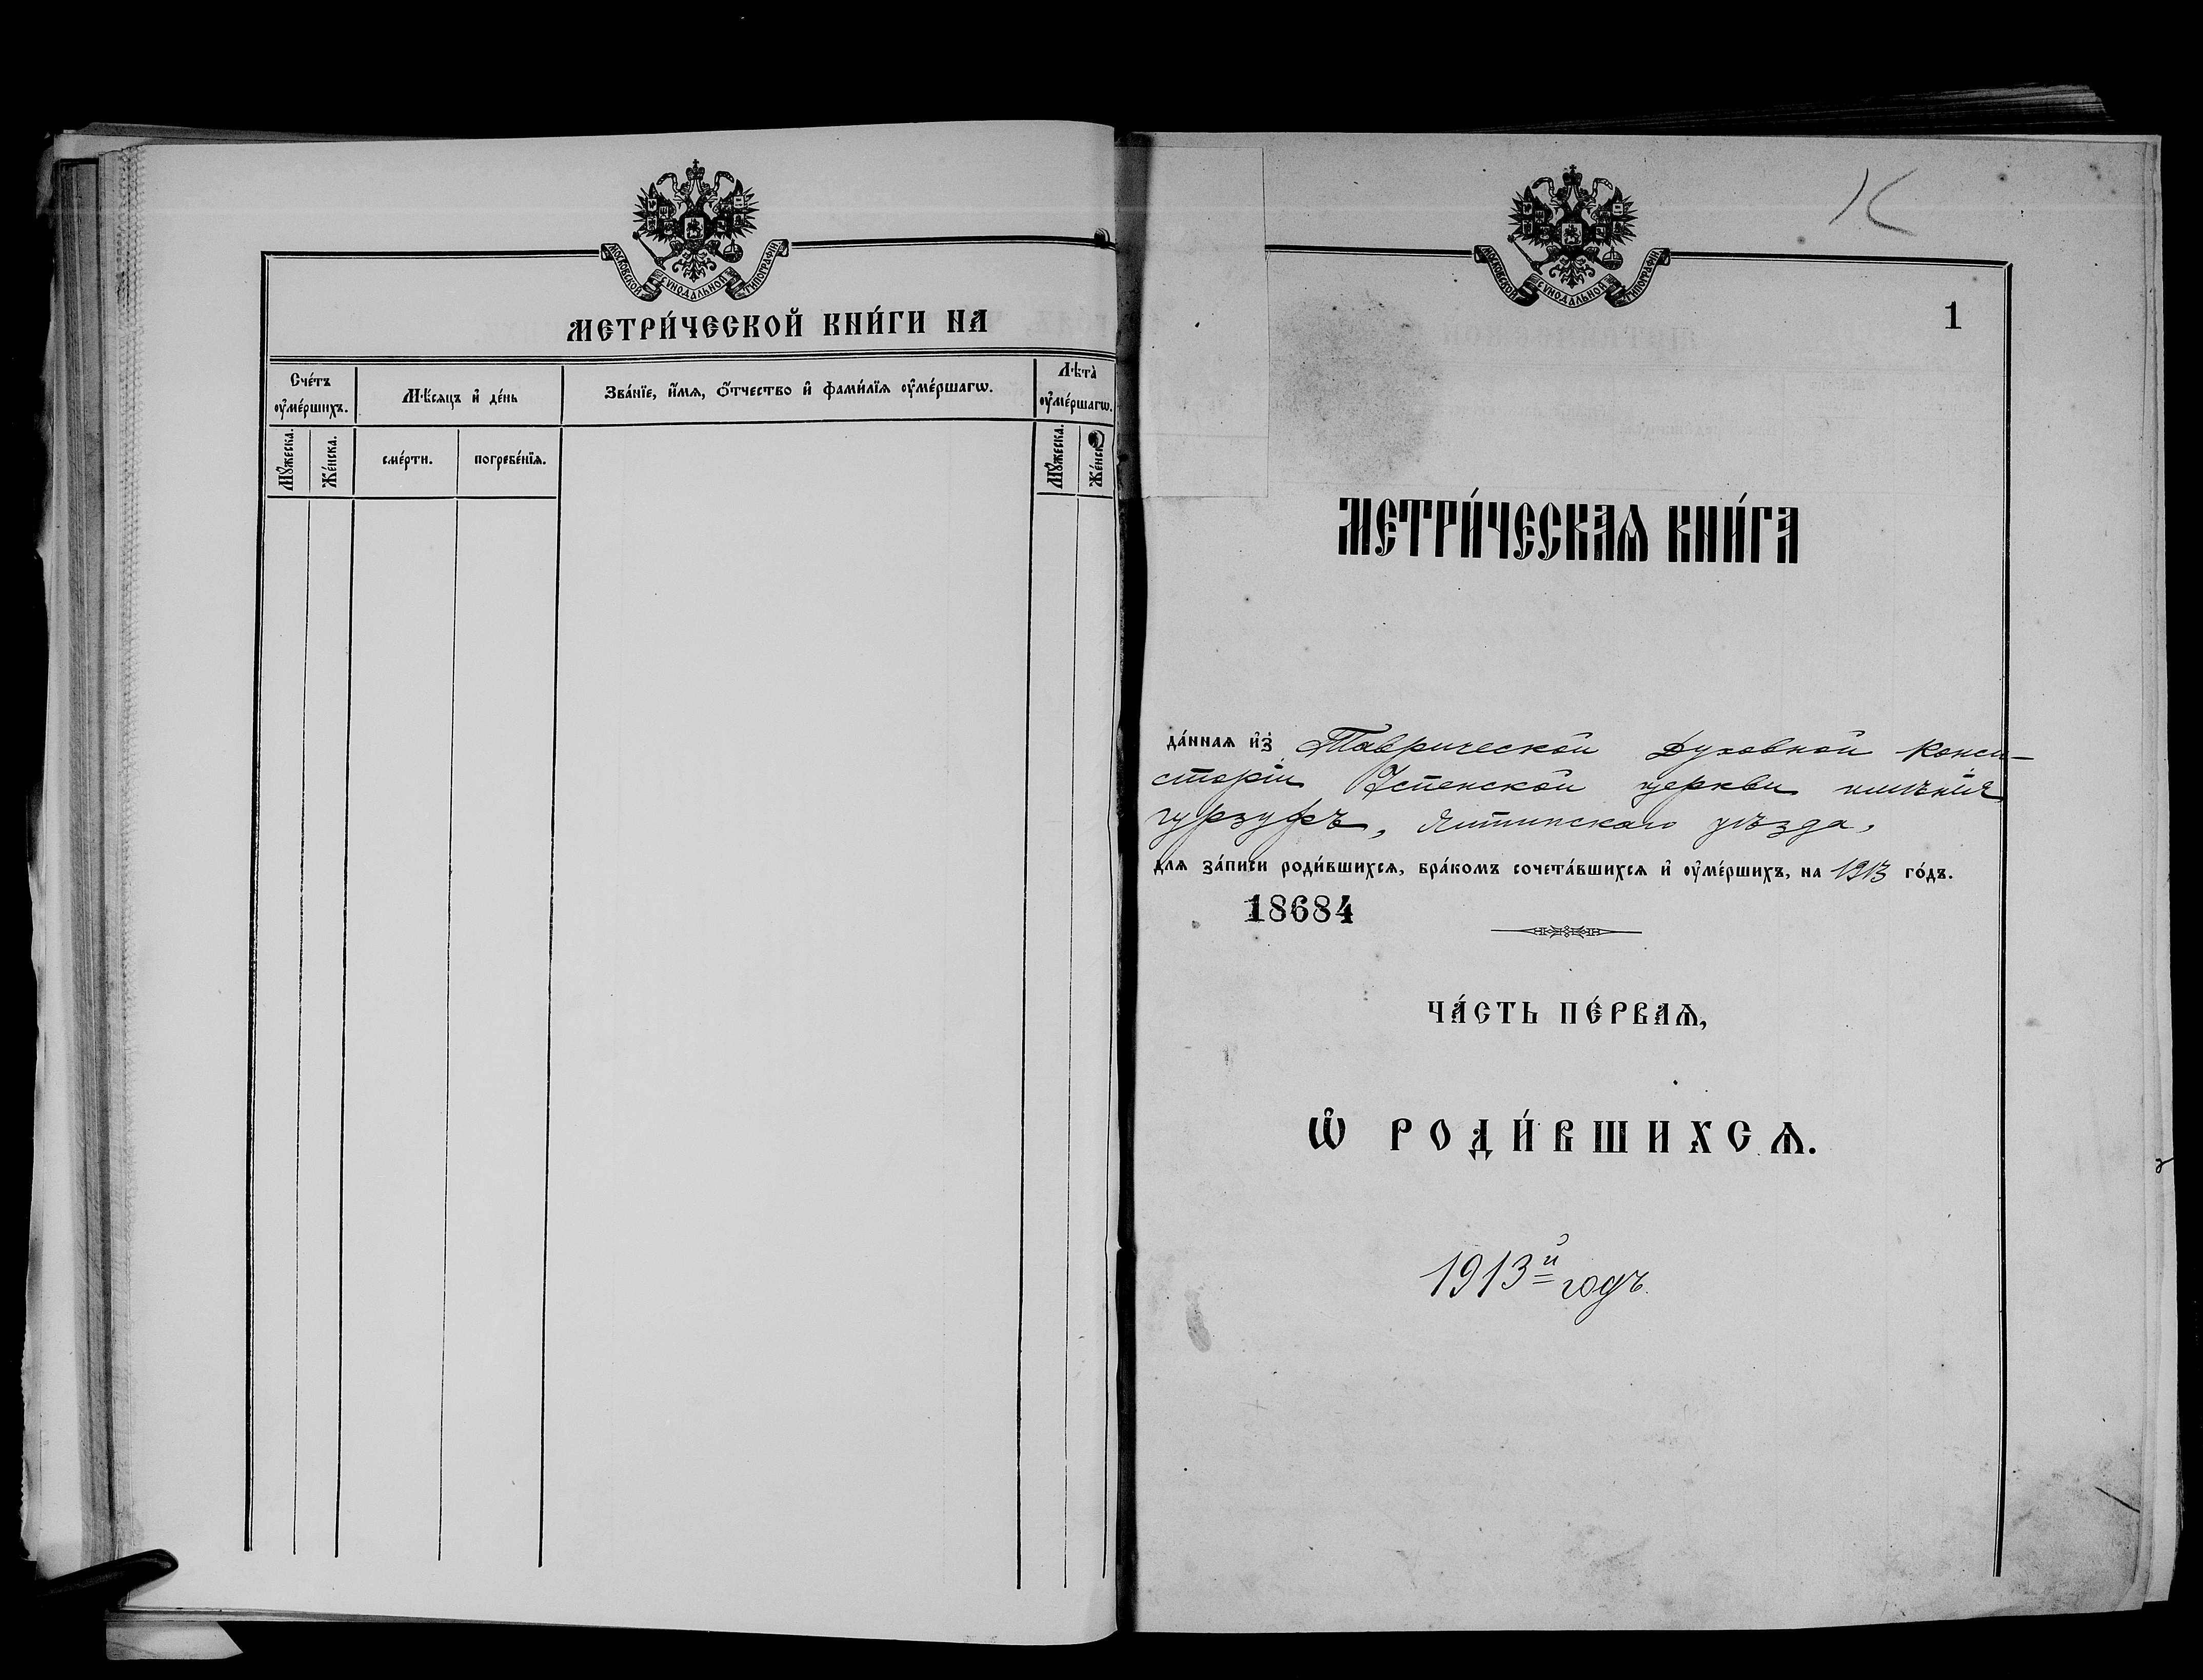 МОСКОВСКОЙ СѴНОДАЛЬНОЙ ТИПОГРАФІИ
МЕТРИ́ЧЕСКОЙ КНИ́ГИ НА
Сче́тъ ᲂу҆ме́ршихъ.
Мѣ́сяцъ и҆ де́нь
Зва́нїе, и҆́мѧ, ѻ҆́тчество и҆ фами́лїѧ ᲂу҆ме́ршагѡ.
Лѣта̀ ᲂу҆ме́ршагѡ.
Мꙋ́жеска.
Же́нска.
сме́рти.
погребе́нїѧ.
Мꙋ́жеска.
МОСКОВСКОЙ СѴНОДАЛЬНОЙ ТИПОГРАФІИ
1
МЕТРИ́ЧЕСКАѦ КНИ́ГА
да́ннаѧ и҆з̾ Таврической Духовной Конси-
сторіи Успенской церкви имѣнія
Гурзуфъ, Ялтинскаго уѣзда,
для за́писи роди́вшихсѧ, бра́комъ сочета́вшихсѧ и҆ ᲂу҆ме́ршихъ, на 1913 го́дъ.
18684
ЧА́СТЬ ПЕ́РВАѦ,
Ѡ҆ РОДИ́ВШИХСѦ.
1913й годъ.